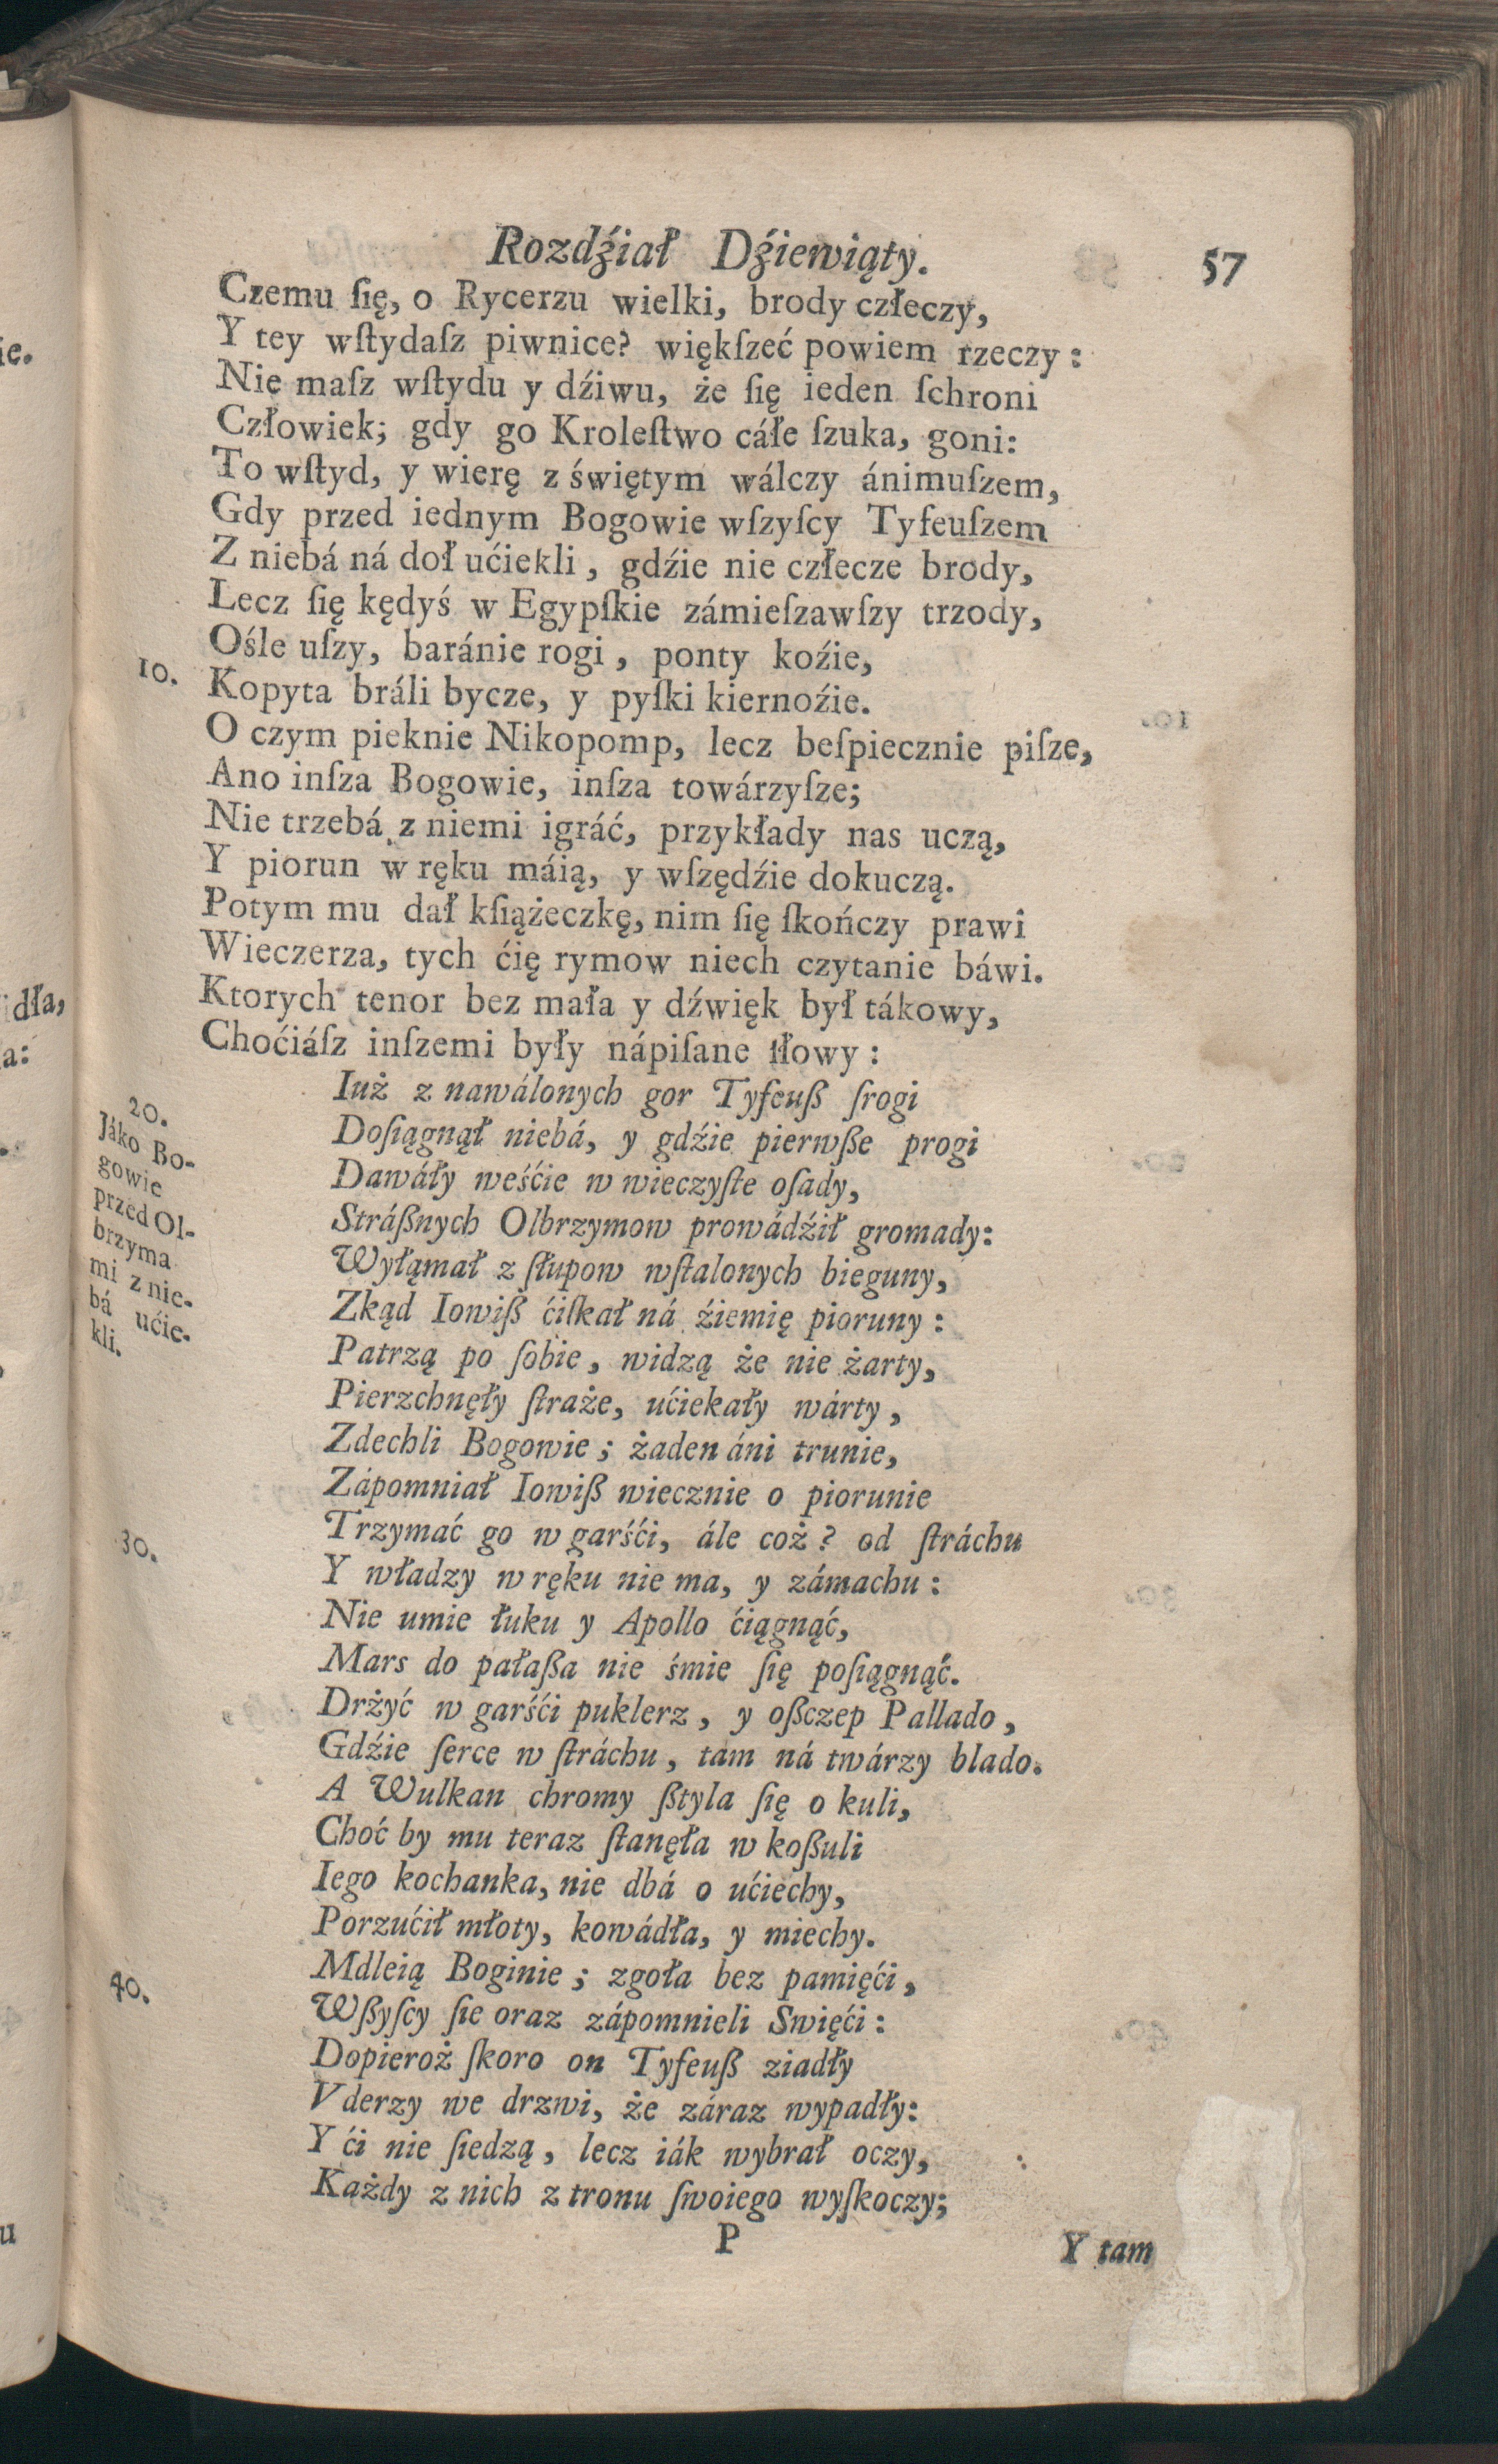 Rozdźiał Dźiewiąty.
57
Czemu ſię, o Rycerzu wielki, brody człeczy,
Y tey wſtydaſz piwnice? więkſzeć powiem rzeczy:
Nie maſz wſtydu y dźiwu, że ſię ieden ſchroni
Człowiek; gdy go Kroleſtwo cáłe ſzuka, goni:
To wſtyd, y wierę z świętym wálczy ánimuſzem,
Gdy przed iednym Bogowie wſzyſcy Tyfeuſzem
Z niebá ná doł ućiekli, gdźie nie człecze brody,
Lecz ſię kędyś w Egypſkie zámieſzawſzy trzody,
Ośle uſzy, baránie rogi, ponty koźie,
10. Kopyta bráli bycze, y pyſki kiernoźie.
O czym pieknie Nikopomp, lecz beſpiecznie piſze,
Ano inſza Bogowie, inſza towárzyſze;
Nie trzebá z niemi igráć, przykłady nas uczą,
Y piorun w ręku máią, y wſzędźie dokuczą.
Potym mu dał kſiążeczkę, nim ſię ſkończy prawi
Wieczerza, tych ćię rymow niech czytanie báwi.
Ktorych tenor bez mała y dźwięk był tákowy,
Choćiáſz inſzemi były nápiſane ſłowy:
Iuż z nawálonych gor Tyfeuß ſrogi
20. Doſiągnął niebá, y gdźie pierwße progi
Dawáły weśćie w wieczyſte oſady,
Stráßnych Olbrzymow prowádźił gromady:
Wyłąmał z ſłupow wſtalonych bieguny,
Zkąd Iowiß ćiſkał ná źiemię pioruny:
Jáko Bo-
gowie
przed Ol-
brzyma
mi z nie-
bá ućie-
kli.
Patrzą po ſobie, widzą że nie żarty,
Pierzchnęły ſtraże, ućiekały wárty,
Zdechli Bogowie; żaden áni trunie,
Zápomniał Iowiß wiecznie o piorunie
Trzymać go w garśći, ále coż? od ſtráchu
30. Y władzy w ręku nie ma, y zámachu:
Nie umie łuku y Apollo ćiągnąć,
Mars do pałaßa nie śmie ſię poſiągnąć.
Drżyć w garśći puklerz, y oßczep Pallado,
Gdźie ſerce w ſtráchu, tam ná twárzy blado.
A Wulkan chromy ßtyla ſię o kuli,
Choć by mu teraz ſtanęła w koßuli
Iego kochanka, nie dbá o ućiechy,
Porzućił młoty, kowádła, y miechy.
Mdleią Boginie; zgoła bez pamięći,
40. Wßyſcy ſie oraz zápomnieli Swięći:
Dopieroż ſkoro on Tyfeuß ziadły
Vderzy we drzwi, że záraz wypadły:
Y ći nie ſiedzą, lecz iák wybrał oczy,
Każdy z nich z tronu ſwoiego wyſkoczy;
P
Y tam
ie.
idła,
a:
u